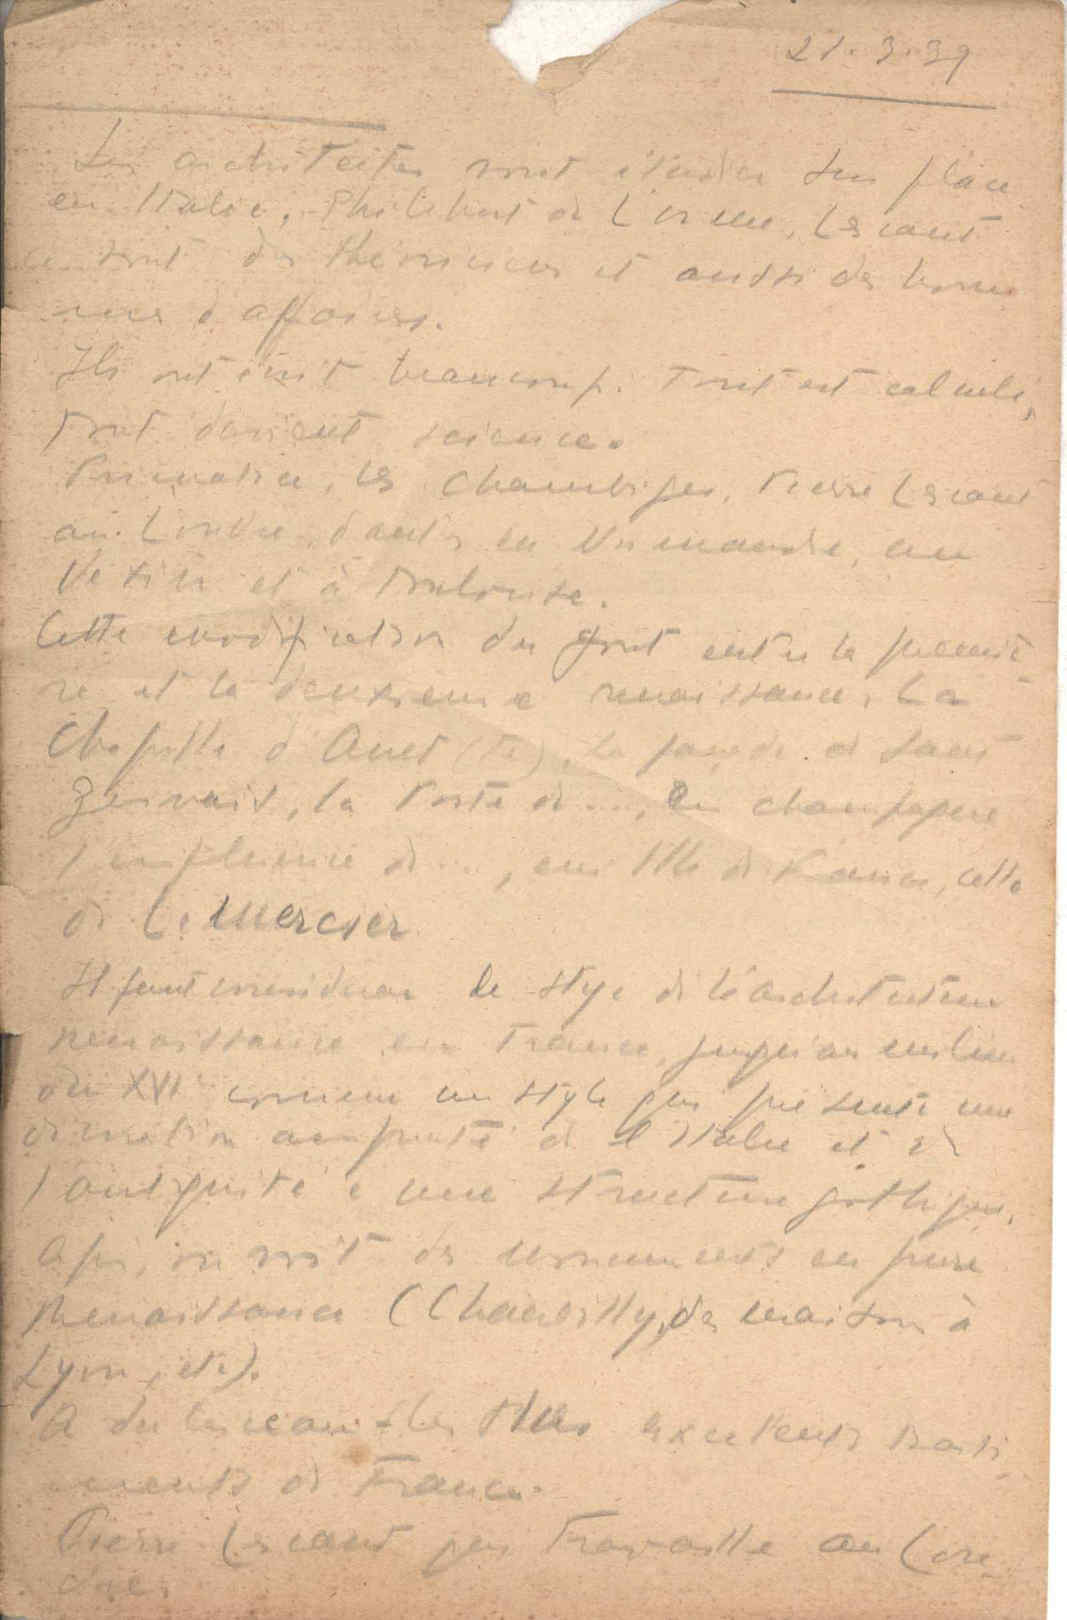 21.3.39
Les architectes vont étudier sur place
en Italie. Philibert de L'orme, Lescaut
ce sont des théoriciens et aussi des hom
mes d'affaires.
Ils ont écrit beaucoup. Tout est calculé,
tout devient science.
Primatice, les Chambiges, Pierre Lescaut
au Louvre, d'autres en Normandie, au
Vexin et à Toulouse.
Cette modification du goût entre la premiè
re et la deuxieme renaissance. La
Chapelle d'Anet (tr), la façade de Saint
Gervais, la Porte de ..., En champagne
l'influence de ..., en Ille de France, celle
de Le Mercier
Il faut considerer le style de l'architecture
renaissance en France, jusqu'au milieu
du XVI comme un style qui présente une
décoration emprunté de l'Italie et de
l'antiquité à une structure gothique.
Apr, on voit des monuments en pure
Renaissance (Chantilly, des maisons à
Lyon, etc).
A du Cerceau - Les Plus excellents basti
ments de France.
Pierre Lescaut qui travaille au Lou
vre.